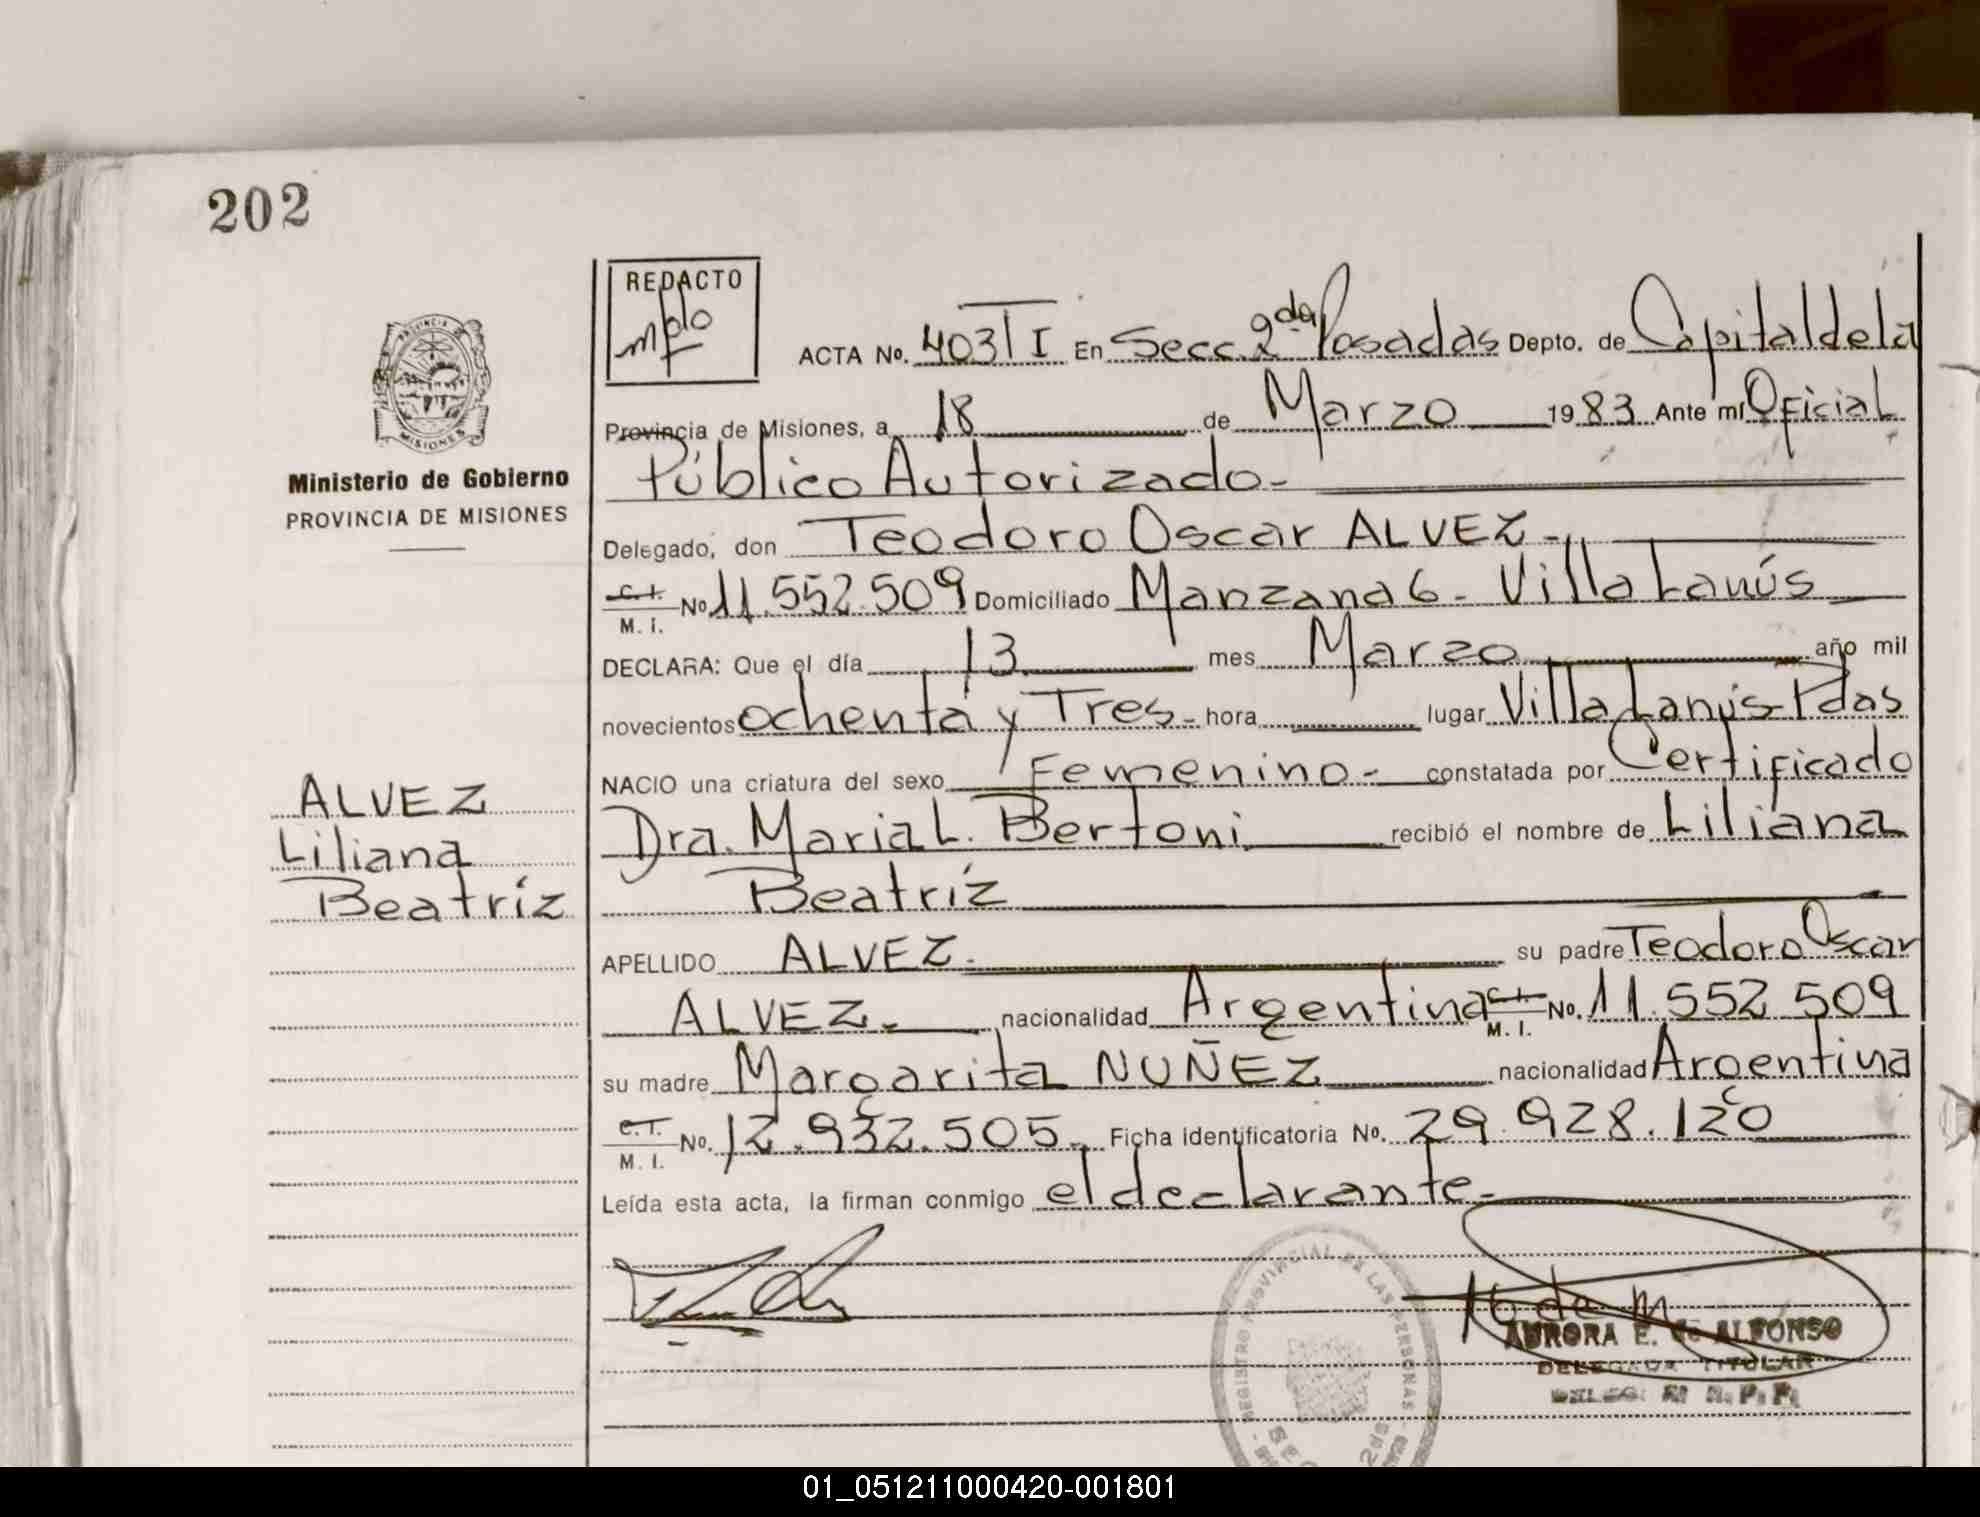 202
REDACTO
ACTA No. 403 T I En Secc. 2da Posadas Depto. de Capital de la
Provincia de Misiones, a 18 de Marzo 1983 Ante mí Oficial
Público Autorizado-
Delegado, don Teodoro Oscar ALVEZ-
C.I. M.I. No 11.552.509 Domiciliado Manzana 6- Villa Lanús
DECLARA: Que el día 13 mes Marzo año mil
novecientos ochenta y Tres- hora lugar Villa Lanús-Pdas
NACIO una criatura del sexo Femenino- constatada por Certificado
Dra. Maria L. Bertoni recibió el nombre de Liliana
Beatríz
APELLIDO ALVEZ- su padre Teodoro Oscar
ALVEZ- nacionalidad Argentina C.I. M.I. No. 11.552.509
su madre Margarita NUÑEZ nacionalidad Argentina
C.I. M.I. No. 12.932.505- Ficha identificatoria No. 29.928.120
Leída esta acta, la firman conmigo el declarante-
PROVINCIA DE
MISIONES
Ministerio de Gobierno
PROVINCIA DE MISIONES
ALVEZ
Liliana
Beatríz
REGISTRO PROVINCIAL DE LAS PERSONAS
AURORA E. de ALFONSO
DELEGADA TITULAR
01_051211000420-001801